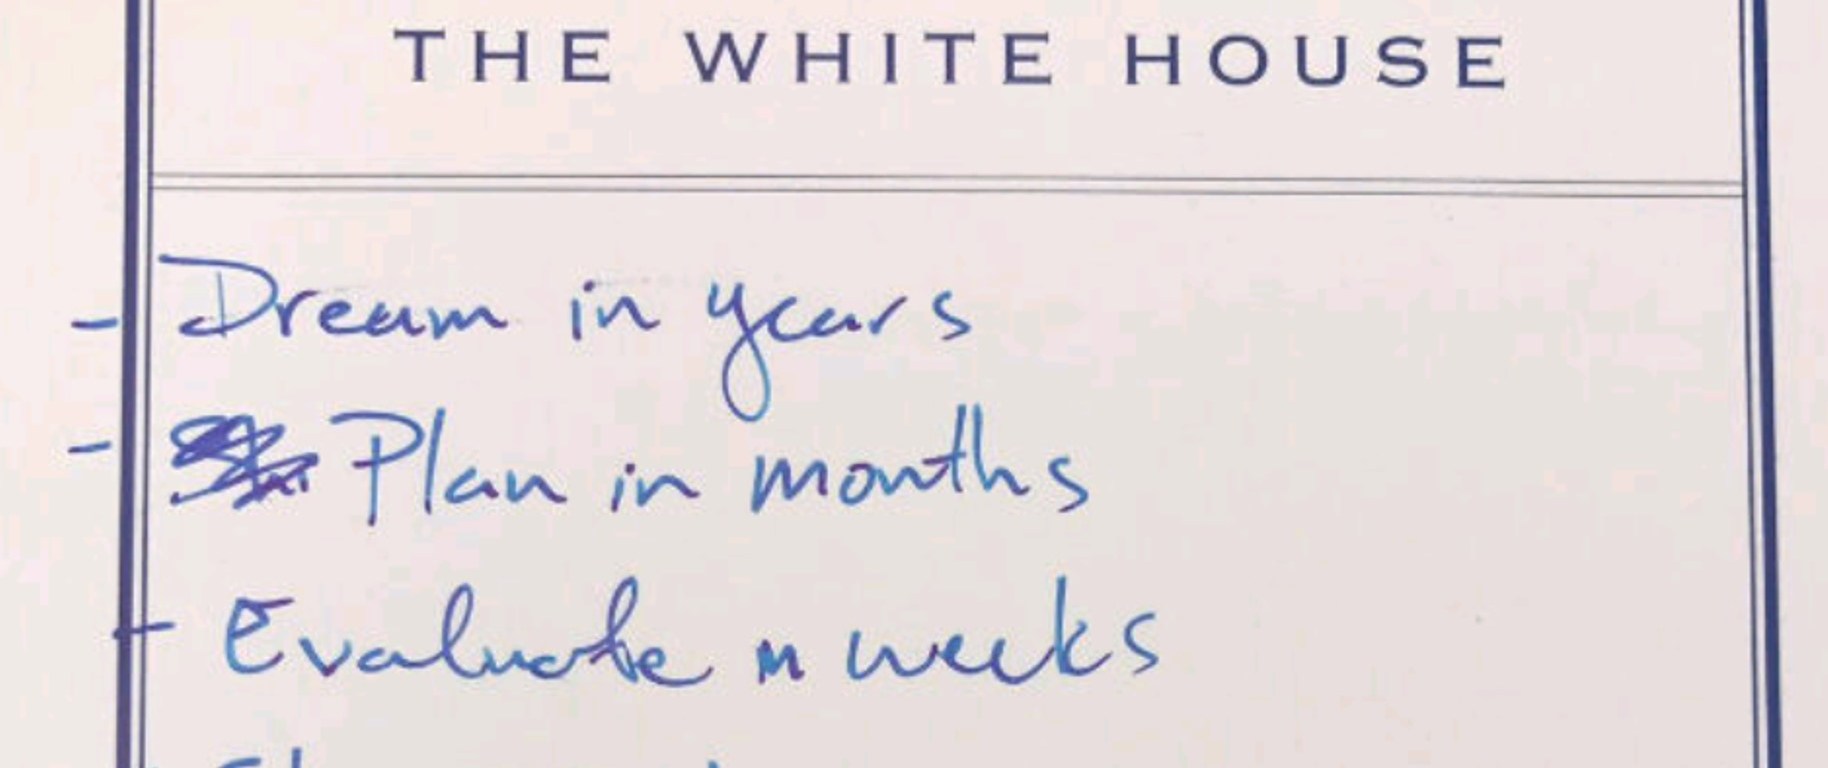 THE WHITE HOUSE
- Dream in years
- Plan in months
- Evaluate in weeks